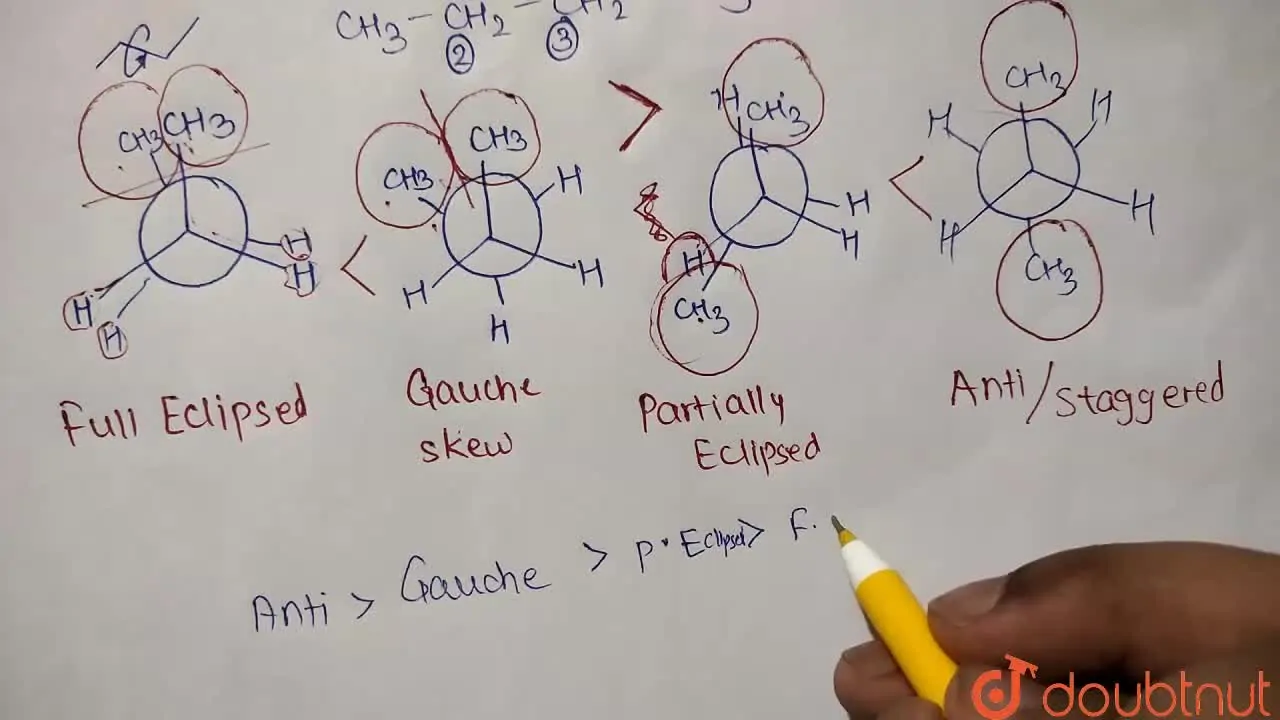 CH3 - CH2 - CH2
2 3
CH3 CH3 CH3 CH3 H CH3 CH3
H H H H
H H H H
H H H H
H H CH3 CH3
H H
Full Eclipsed
Gauche
skew
Partially
Eclipsed
Anti/Staggered
Anti > Gauche > P. Eclipsed > F.
doubtnut